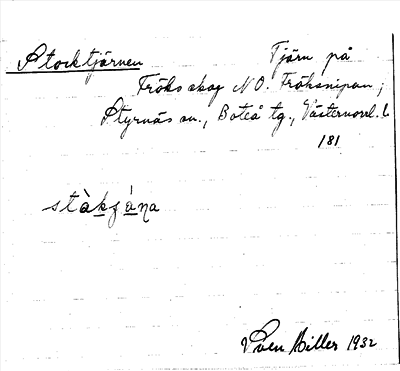 Stocktjärnen Tjärn på
Fröks skog NO. Fröksnipan,
Styrnäs sn., Boteå tg., Västernorrl. l.
181
stàkʒána
Sven Miller 1932